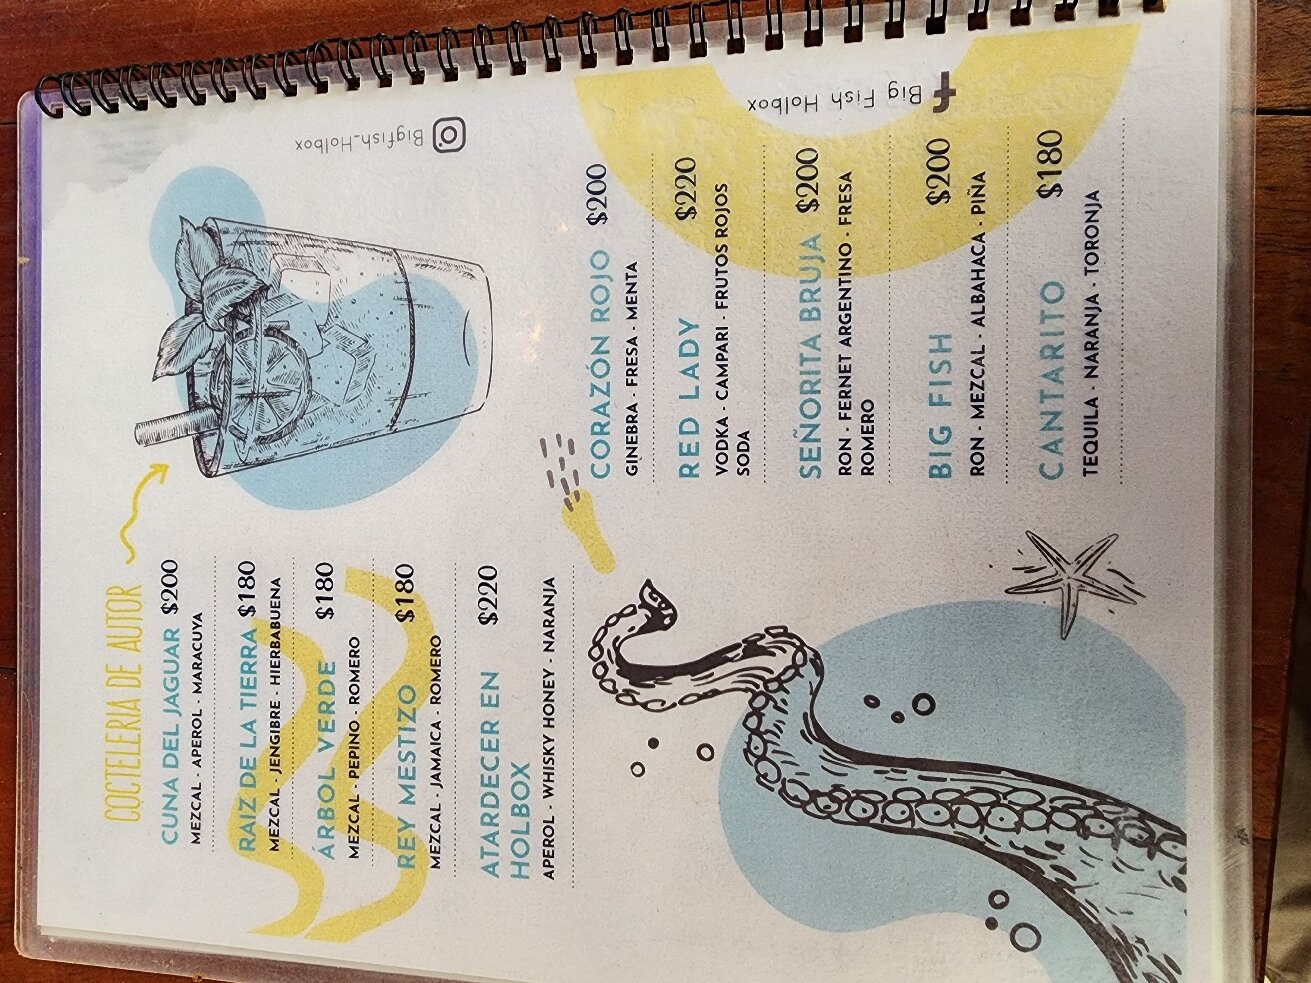 COCTELERIA DE AUTOR
CUNA DEL JAGUAR $200
MEZCAL - APEROL - MARACUYA
RAIZ DE LA TIERRA $180
MEZCAL - JENGIBRE - HIERBABUENA
ÁRBOL VERDE $180
MEZCAL - PEPINO - ROMERO
REY MESTIZO $180
MEZCAL - JAMAICA - ROMERO
ATARDECER EN $220
HOLBOX
APEROL - WHISKY HONEY - NARANJA
Bigfish_Holbox
CORAZÓN ROJO $200
GINEBRA - FRESA - MENTA
RED LADY $220
VODKA - CAMPARI - FRUTOS ROJOS
SODA
SEÑORITA BRUJA $200
RON - FERNET ARGENTINO - FRESA
ROMERO
BIG FISH $200
RON - MEZCAL - ALBAHACA - PIÑA
CANTARITO $180
TEQUILA - NARANJA - TORONJA
Big Fish Holbox